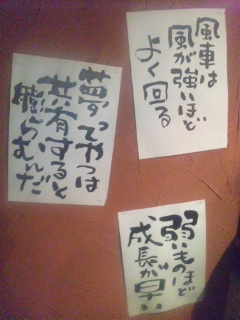 風車は
風が強いほど
よく回る
夢ってやつは
共有すると
膨らむんだ
弱いものほど
成長が早い